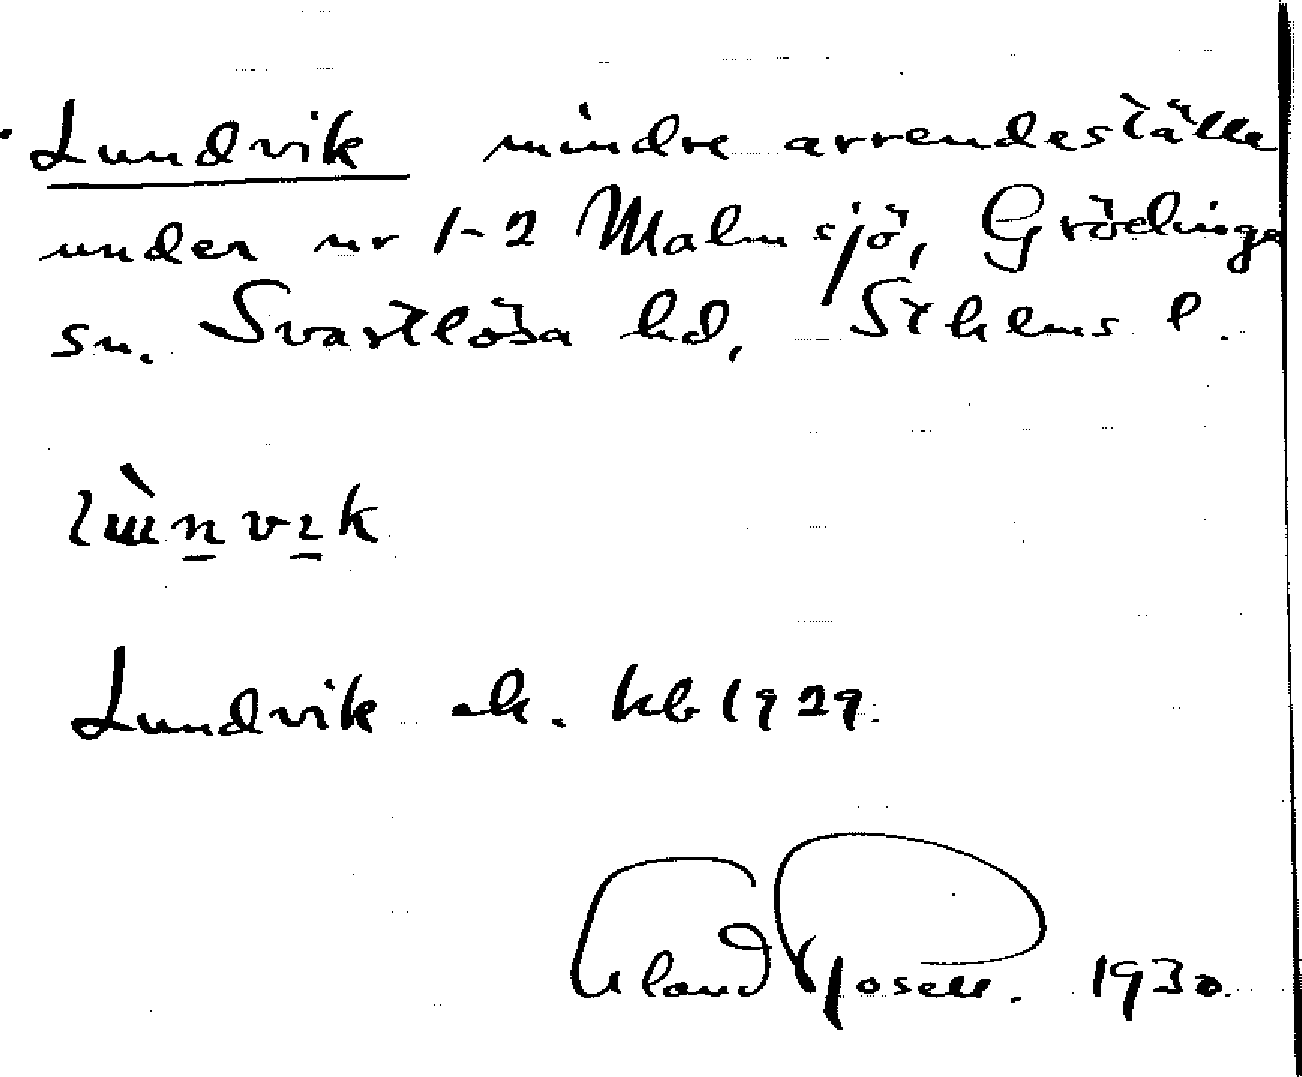 Lundvik mindre arrendeställe
under nr 1-2 Malmsjö, Grödinge
sn. Svartlösa hd, Sthlms l.
Lundvik ek. kb 1929.
Erland Rosell. 1930.